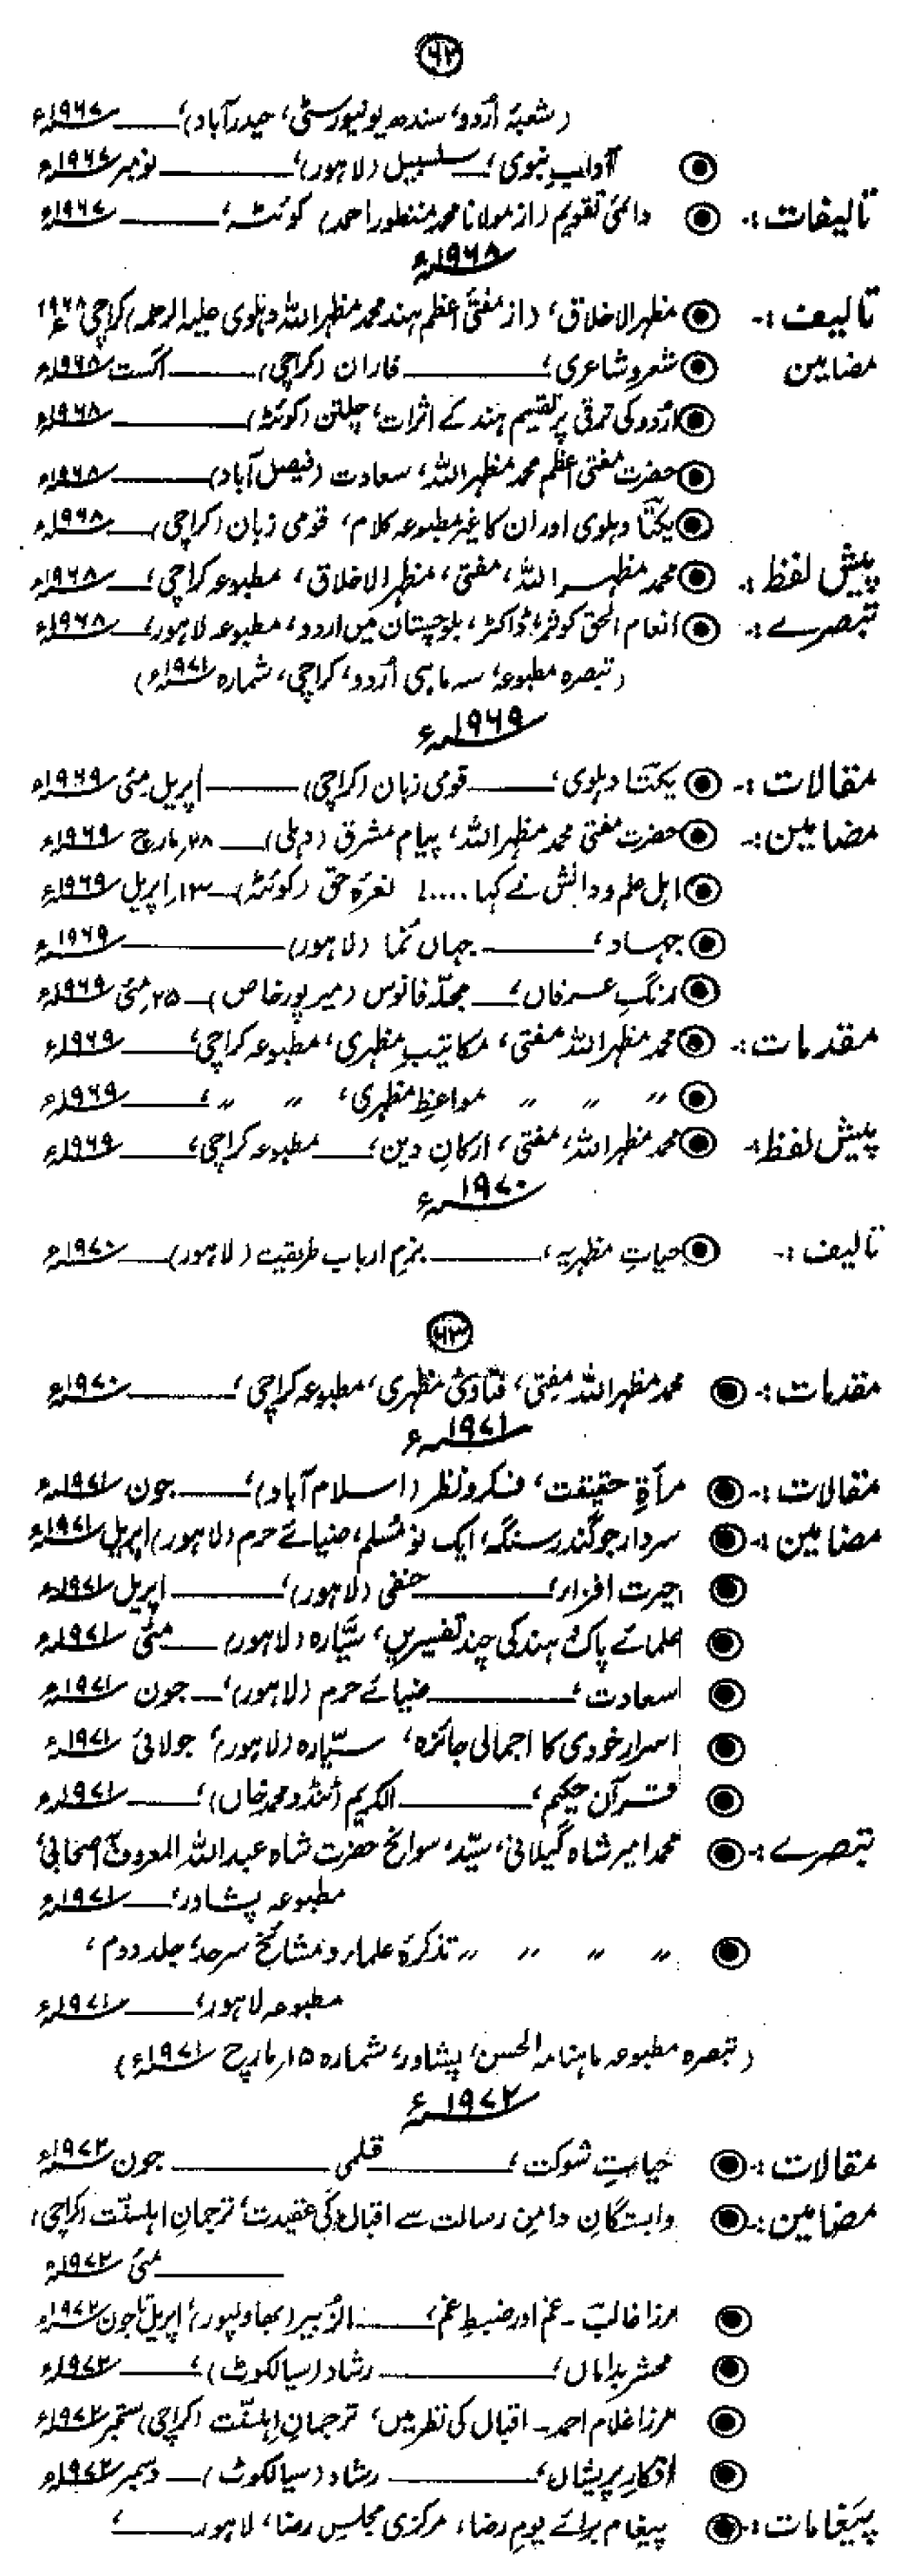 ۶۲
(شعبۂ اُردو، سندھ یونیورسٹی، حیدرآباد)، ۱۹۶۷ء
آدابِ نبوی، سلسبیل (لاہور)، نومبر ۱۹۶۷ء
تالیفات :- دائمی تقویم (از مولانا محمد منظور احمد) کوئٹہ، ۱۹۶۷ء
۱۹۶۸ء
تالیف :- مظہر الاخلاق، (از مفتیٔ اعظم ہند محمد مظہر اللہ دہلوی علیہ الرحمہ) کراچی ۱۹۶۸ء
مضامین شعر و شاعری، فاران (کراچی) اگست ۱۹۶۸ء
اُردو کی ترقی پر تقسیم ہند کے اثرات، چلتن (کوئٹہ) ۱۹۶۸ء
حضرت مفتی اعظم محمد مظہر اللہ، سعادت (فیصل آباد) ۱۹۶۸ء
یکتا دہلوی اور ان کا غیر مطبوعہ کلام، قومی زبان (کراچی) ۱۹۶۸ء
پیش لفظ :- محمد مظہر اللہ، مفتی، مظہر الاخلاق، مطبوعہ کراچی، ۱۹۶۸ء
تبصرے :- انعام الحق کوثر، ڈاکٹر، بلوچستان میں اردو، مطبوعہ لاہور، ۱۹۶۸ء
(تبصرہ مطبوعہ، سہ ماہی اُردو، کراچی، شمارہ ۱۹۷۱ء)
۱۹۶۹ء
مقالات :- یکتا دہلوی، قومی زبان (کراچی) اپریل مئی ۱۹۶۹ء
مضامین :- حضرت مفتی محمد مظہر اللہ، پیام مشرق (دہلی) ۲۸ مارچ ۱۹۶۹ء
اہل علم و دانش نے کہا ....! نعرۂ حق (کوئٹہ) ۱۳ اپریل ۱۹۶۹ء
جہاد، جہاں نُما (لاہور) ۱۹۶۹ء
رنگِ عرفاں، مجلّہ فانوس (میر پور خاص) ۲۵ مئی ۱۹۶۹ء
مقدمات :- محمد مظہر اللہ مفتی، مکاتیبِ مظہری، مطبوعہ کراچی، ۱۹۶۹ء
〃 〃 〃 مواعظِ مظہری، 〃 〃، ۱۹۶۹ء
پیش لفظ :- محمد مظہر اللہ، مفتی، ارکانِ دین، مطبوعہ کراچی، ۱۹۶۹ء
۱۹۷۰ء
تالیف :- حیاتِ مظہریہ، بزمِ اربابِ طریقت (لاہور) ۱۹۷۰ء
۶۳
مقدمات :- محمد مظہر اللہ مفتی، فتاویٰ مظہری، مطبوعہ کراچی، ۱۹۷۰ء
۱۹۷۱ء
مقالات :- مرأۃِ حقیقت، فکر و نظر (اسلام آباد)، جون ۱۹۷۱ء
مضامین :- سردار جوگندر سنگھ، ایک نو مُسلم، ضیائے حرم (لاہور) اپریل ۱۹۷۱ء
حیرت افزا، حنفی (لاہور)، اپریل ۱۹۷۱ء
علمائے پاک و ہند کی چند تفسیریں، سیّارہ (لاہور) مئی ۱۹۷۱ء
سعادت، ضیائے حرم (لاہور)، جون ۱۹۷۱ء
اسرارِ خودی کا اجمالی جائزہ، سیّارہ (لاہور)، جولائی ۱۹۷۱ء
قرآن حکیم، الکریم (ٹنڈو محمد خاں)، ۱۹۷۱ء
تبصرے :- محمد امیر شاہ گیلانی، سیّد، سوانح حضرت شاہ عبد اللہ المعروف اصحابی،
مطبوعہ پشاور، ۱۹۷۱ء
〃 〃 〃 〃 تذکرۂ علماء و مشائخ سرحد، جلد دوم،
مطبوعہ لاہور، ۱۹۷۱ء
(تبصرہ مطبوعہ ماہنامہ الحسن، پشاور، شمارہ ۱۵ مارچ ۱۹۷۱ء)
۱۹۷۲ء
مقالات :- حیاتِ شوکت، قلمی جون ۱۹۷۲ء
مضامین :- وابستگانِ دامنِ رسالت سے اقبال کی عقیدت، ترجمانِ اہلسنّت (کراچی)،
مئی ۱۹۷۲ء
مرزا غالب ۔ غم اور ضبطِ غم، الزبیر (بھاولپور) اپریل تا جون ۱۹۷۲ء
محشر بداماں، رشاد (سیالکوٹ)، ۱۹۷۲ء
مرزا غلام احمد ۔ اقبال کی نظر میں، ترجمانِ اہلسنّت (کراچی) ستمبر ۱۹۷۲ء
افکارِ پریشاں، رشاد (سیالکوٹ) دسمبر ۱۹۷۲ء
پیغامات :- پیغام برائے یومِ رضا، مرکزی مجلسِ رضا، لاہور،